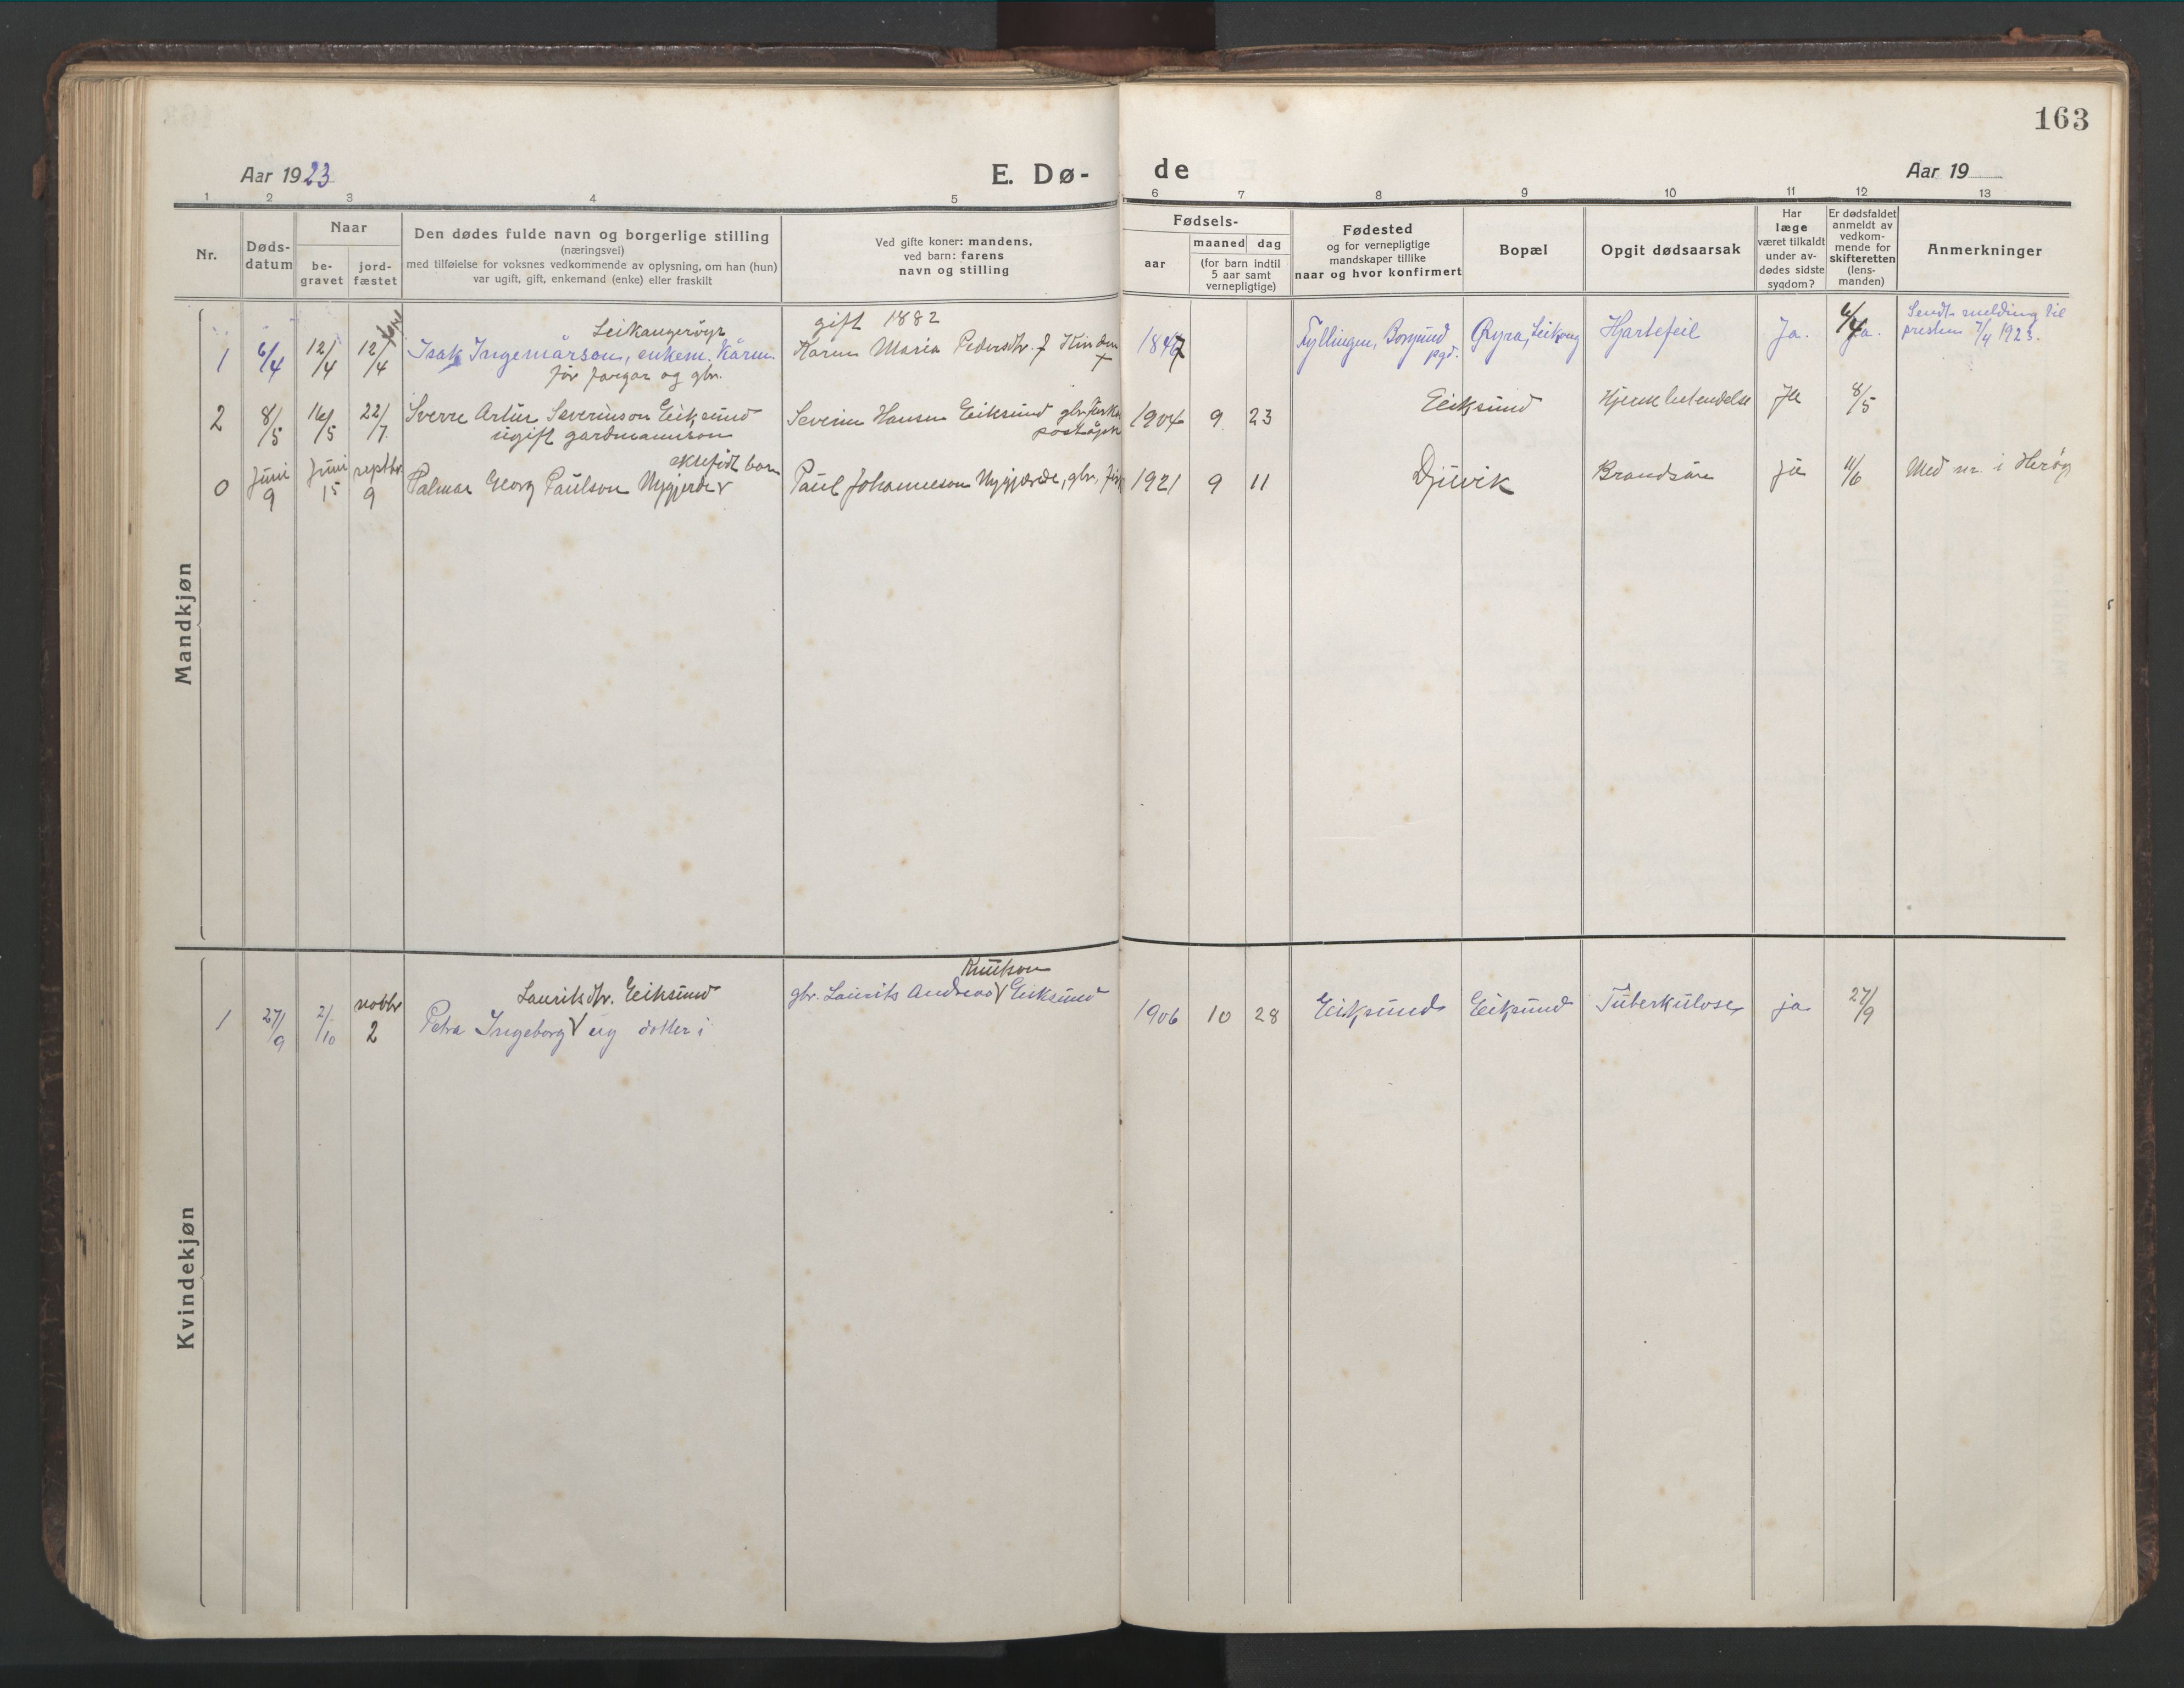 163
Aar 1923
E. Dø-
de
Aar 19
1 2 3 4 5 6 7 8 9 10 11 12 13
Nr.
Døds-
datum
Naar
be-
gravet
jord-
fæstet
Den dødes fulde navn og borgerlige stilling
(næringsvei)
med tilføielse for voksnes vedkommende av oplysning, om han (hun)
var ugift, gift, enkemand (enke) eller fraskilt
Ved gifte koner: mandens,
ved barn: farens
navn og stilling
Fødsels-
aar
maaned dag
(for barn indtil
5 aar samt
vernepligtige)
Fødested
og for vernepligtige
mandskaper tillike
naar og hvor konfirmert
Bopæl
Opgit dødsaarsak
Har
læge
været tilkaldt
under av-
dødes sidste
sygdom?
Er dødsfaldet
anmeldt av
vedkom-
mende for
skifteretten
(lens-
manden)
Anmerkninger
Mandkjøn
Leikangerøyr
gift 1882
1 6/4 12/4 12/4 Isak Ingemarson, enkem. Karen Maria Pedersdtr. 1847 Fyllingen, Borgund Hjartefeil Ja. 6/4 Ja. Sendt melding til
før og gbr.
pgd.
presten 7/4 1923.
2 8/5 16/5 22/7 Sverre Artur Severinson Eiksund Severin Hansen Eiksund gbr. 1904 9 23 Eiksund Ja 8/5
ugift gardmannson
ektefødt barn
0 Juni 9 Juni 15 septbr 9 Palmar Georg Paulson Nygjerde Paul Johanneson Nygjærde, gbr, 1921 9 11 Djuvik Brandsår ja 11/6 Med nr. i Herøy
Kvindekjøn
Lauritsdtr. Eiksund
Knutson
1 27/9 2/10 novbr 2 Petra Ingeborg V ug dotter i gbr. Laurits Andreas V Eiksund 1906 10 28 Eiksund Eiksund Tuberkulose ja 27/9